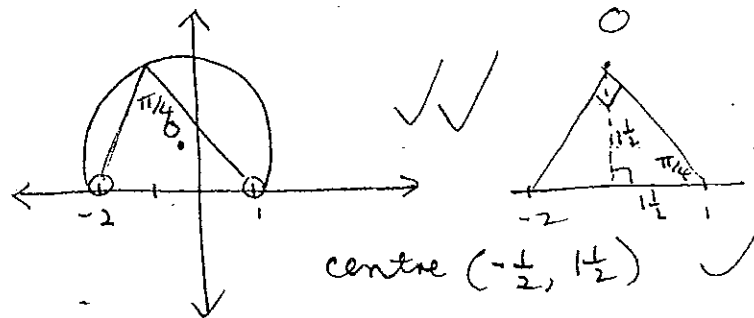 π/4
O
-2
1
O
1½
π/4
-2
1½
1
centre (-½, 1½)